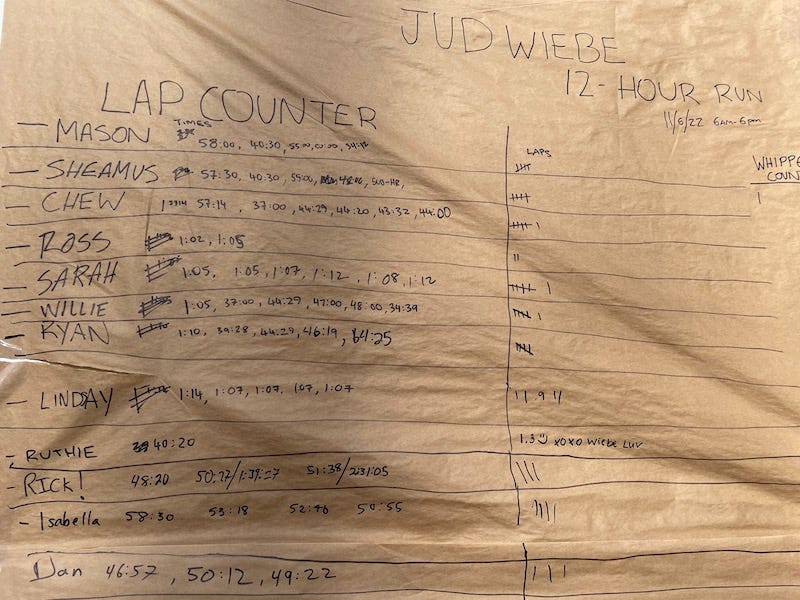 JUD WIEBE
12-HOUR RUN
11/6/22 6AM-6pm
LAP COUNTER
TIMES
LAPS
WHIPPE
COUN
— MASON 58:00, 40:30,
— SHEAMUS 57:30, 40:30, 55:00, SUB-HR,
1
— CHEW 57:14, 37:00, 44:29, 44:20, 43:32, 44:00
— ROSS 1:02, 1:05
— SARAH 1:05, 1:05, 1:07, 1:12, 1:08, 1:12
— WILLIE 1:05, 37:00, 44:29, 47:00, 48:00, 34:39
— RYAN 1:10, 39:28, 44:29, 46:19, 64:25
— LINDSAY 1:14, 1:07, 1:07, 1:07, 1:07
- RUTHIE 40:20 1.3 xoxo wiebe luv
- RICK! 48:20 50:27/1:39:27 51:38/2:31:05
- Isabella 58:30 53:18 52:46 50:55
Dan 46:57, 50:12, 49:22